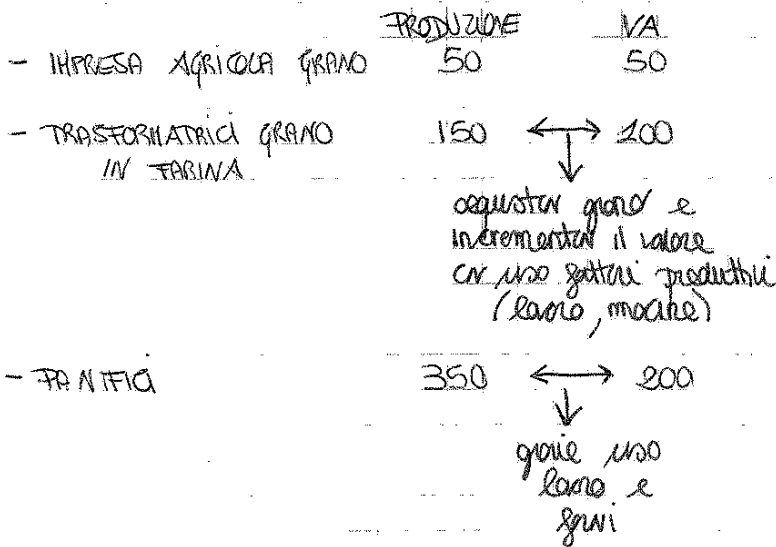 PRODUZIONE VA
- IMPRESA AGRICOLA GRANO 50 50
- TRASFORMATRICI GRANO 150 ↔ 100
IN FARINA
acquistar grano e
incrementar il valore
con uso fattori produttivi
(lavoro, macchine)
- PANIFICI 350 ↔ 200
grazie uso
lavoro e
forni